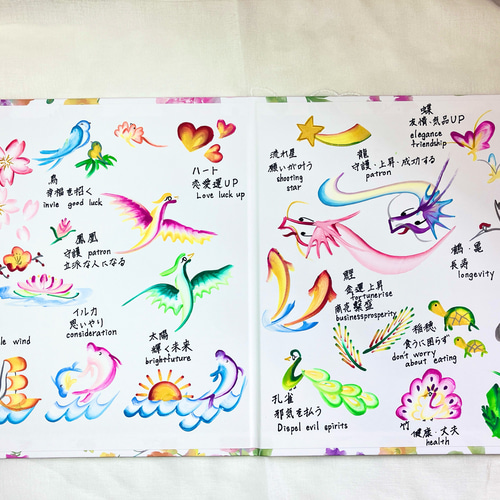 鳥
幸福を招く
invie good luck
ハート
恋愛運UP
Love luck up
鳳凰
守護 patron
立派な人になる
イルカ
思いやり
consideration
wind
太陽
輝く未来
bright future
流れ星
願いが叶う
shooting
star
龍
守護・上昇・成功する
patron
蝶
友情・気品UP
elegance
friendship
鶴・亀
長寿
longevity
鯉
金運上昇
fortunerise
商売繁盛
businessprosperity
稲穂
食うに困らず
don't worry
about eating
孔雀
邪気を払う
Dispel evil spirits
竹
健康・丈夫
health